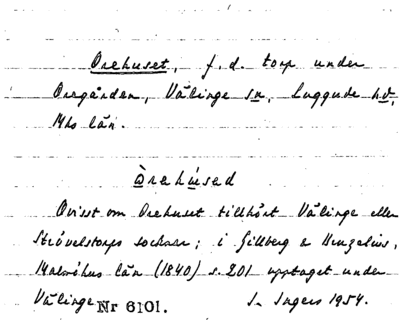 Orehuset, f.d. torp under
Oregården, Välinge sn, Luggude hd,
Mhs län.
Òrehúsed
Ovisst om Orehuset tillhört Välinge eller
Strövelstorps socknar; i Gillberg & Henzelius,
Malmöhus län (1840) s. 201 upptaget under
Välinge
Nr 6101. S. Ingers 1954.